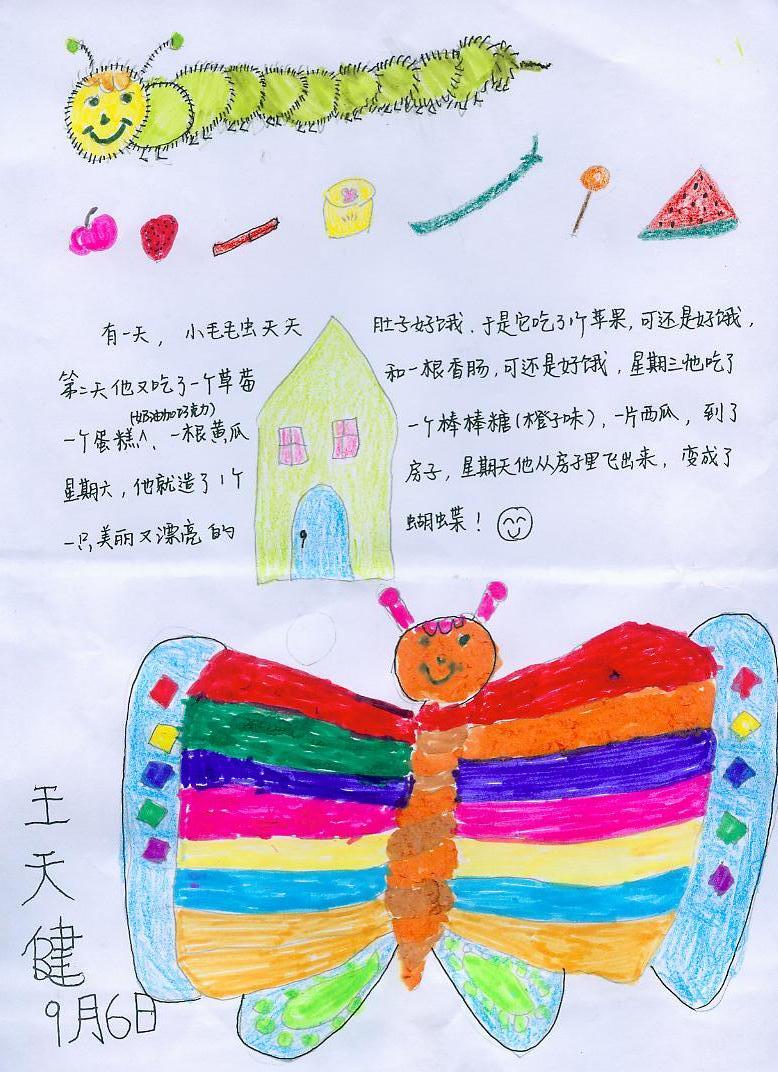 有一天，小毛毛虫天天 肚子好饿，于是它吃了1个苹果，可还是好饿，
第二天他又吃了一个草莓 和一根香肠，可还是好饿，星期三他吃了
(奶油加巧克力)
一个蛋糕∧、一根黄瓜 一个棒棒糖(橙子味)，一片西瓜，到了
星期六，他就造了1个 房子，星期天他从房子里飞出来，变成了
一只美丽又漂亮的 蝴蝶！
王天健
9月6日